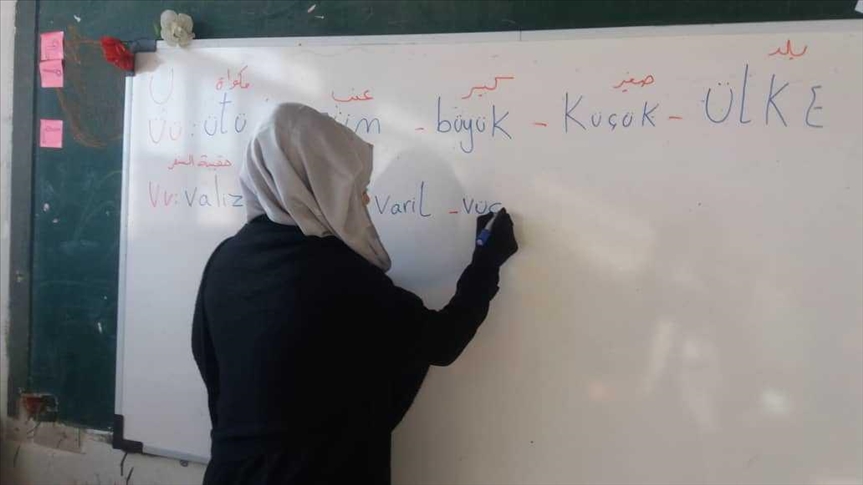 مكواة عنب كبير صغير بلد
Üü: ütü üm - büyük - Küçük - ÜLKE
حقيبة السفر
Vv: valiz varil - vüc